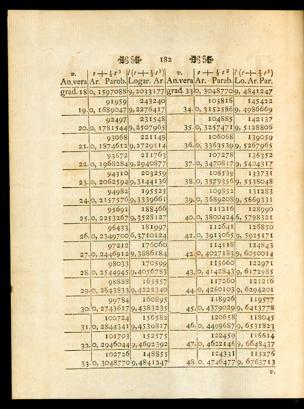 182
v. t+⅓t³ l(t+⅓t³) v. t+⅓t³ l(t+⅓t³)
An.vera Ar. Parob. Logar. Ar. An.vera Ar. Parab. Lo. Ar. Par.
grad. 18 0, 1597088 9,2033177 grad. 33 0, 3048770 9, 4841247
91959 243240 103816 145422
19. 0, 1689047 9,2276417 34. 0, 3152586 9, 4986669
92497 231548 104885 142137
20. 0, 1781544 9,2507965 35. 0, 3257471 9, 5128806
93068 221149 106068 139059
21. 0, 1874612 9,2729114 36. 0, 3363539 9, 5267965
93672 211763 107278 136352
22. 0, 1968284 9,2940877 37. 0, 3470817 9, 5404317
94310 203259 108539 133731
23. 0, 2062594 9,3144136 38. 0, 3579356 9, 5538048
94982 195525 109852 131283
24. 0, 2157576 9,3339661 39. 0, 3689208 9, 5669331
95691 188466 111216 128990
25. 0, 2253267 9,3528127 40. 0, 3800424 9, 5798321
96433 181997 112641 126850
26. 0, 2349700 9,3710124 41. 0, 3913065 9, 5925171
97212 176060 114118 124843
27. 0, 2446912 9,3886184 42. 0, 4027183 9, 6050014
98033 170599 115660 122971
28. 0, 2544945 9,4056783 43. 0, 4142843 9, 6172985
98888 165557 117260 121216
29. 0, 2643833 9,4222340 44. 0, 4260103 9, 6294201
99784 160895 118926 119577
30. 0, 2743617 9,4383235 45. 0, 4379029 9, 6413778
100724 156582 120658 118045
31. 0, 2844341 9,4539817 46. 0, 4499687 9, 6531823
101703 152575 122459 116614
32. 0, 2946044 9,4692392 47. 0, 4622146 9, 6648437
102726 148855 124331 115276
33. 0, 3048770 9,4841247 48. 0, 4746477 9, 6763713
v.